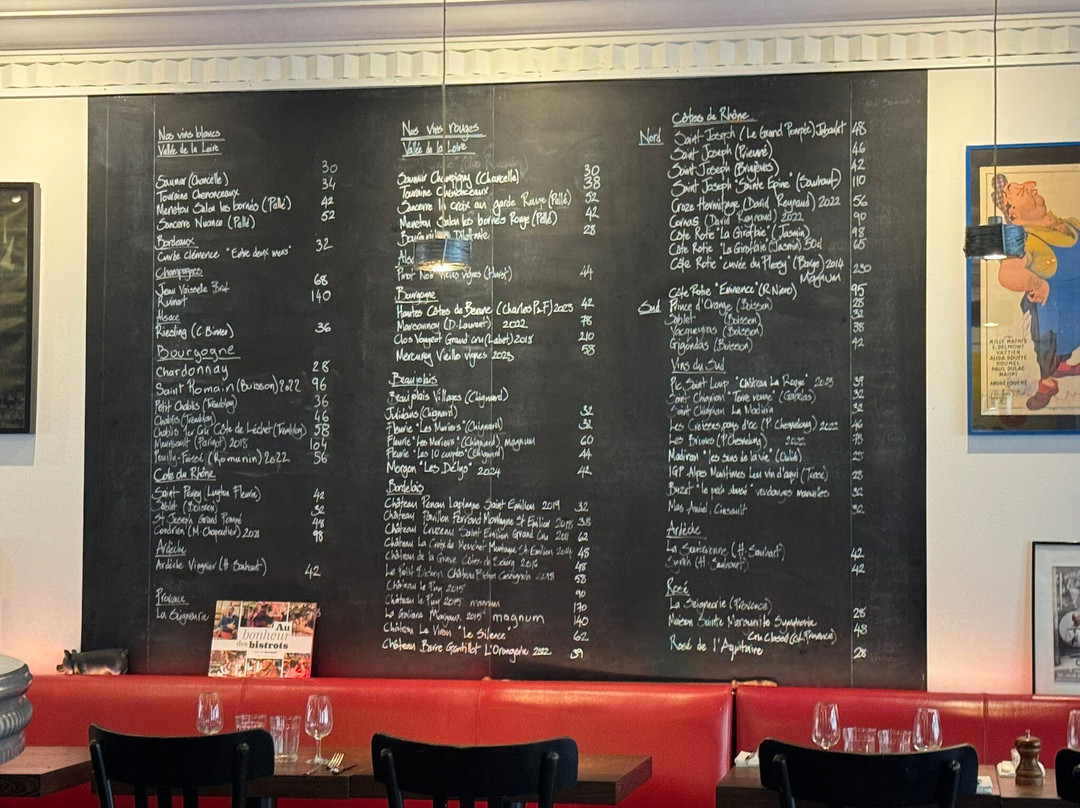 Nos vins blancs
Vallée de la Loire
30
Saumur (Chancelle)
34
Touraine Chenonceaux
Menetou Salon les bornés (Pellé) 42
Sancerre Nuance (Pellé) 52
Bordeaux
Cuvée Clémence "Entre deux mers" 32
Champagnes
Jean Vesselle Brut 68
Ruinart 140
Alsace
Riesling (C. Binner) 36
Bourgogne
Chardonnay 28
Saint Romain (Buisson) 2022 96
Petit Chablis (Tremblay) 36
Chablis (Tremblay) 46
Chablis 1er Cru Côte de Léchet (Tremblay) 58
Meursault (Parigot) 2018 104
Pouilly-Fuissé (Romanin) 2022 56
Cote du Rhône
Saint Peray (Lugton Fleurie) 42
Sablet (Boisson) 32
St Joseph Grand Pompé 48
Condrieu (M. Chapoutier) 2021 98
Ardèche
Ardèche Viognier (H Souhaut) 42
Provence
La Seigneurie
Nos vins rouges
Vallée de la Loire
Saumur Champigny (Chancelle) 30
Touraine Chenonceaux 38
Sancerre la croix au garde Rouge (Pellé) 52
Menetou Salon les bornés Rouge (Pellé) 42
Dilettante 28
Als
Pinot Noir Vieilles vignes (Hurst) 44
Bourgogne
Hautes Côtes de Beaune (Charles P.F) 2023 42
Marsannay (D. Laurent) 2022 78
Clos Vougeot Grand cru (Labet) 2018 210
Mercurey Vieille vignes 2023 58
Beaujolais
Beaujolais Villages (Chignard)
Juliénas (Chignard) 32
Fleurie "Les Moriers" (Chignard) 32
Fleurie "Les Moriers" (Chignard) magnum 60
Fleurie "Les 10 couples" (Chignard) 44
Morgon "Les Delys" 2024 42
Bordelais
Château Penau Laplagne Saint Emilion 2019 32
Château Pavillon Ferrand Montagne St Emilion 2018 38
Château Cruzeau Saint Emilion Grand Cru 2011 62
Château La Croix de Mouchet Montagne St Emilion 48
Château de la Grave Côtes de Bourg 2016 48
Le Petit Pichon Château Pichon 2018 58
Château le Puy 2015 90
Château le Puy 2015 magnum 170
La Galiana Margaux 2015 magnum 140
Château Le Vieux "Le Silence" 62
Château Barre Gentillot L'Orangerie 2022 39
Côtes de Rhône
Nord Saint Joseph (Le Grand Pompée) Jaboulet 48
Saint Joseph (Prieuré) 46
Saint Joseph (Bruyères) 42
Saint Joseph "Sainte Epine" (Souhaut) 110
Croze Hermitage (David Reynaud) 2022 56
Cornas (David Reynaud) 2022 90
Côte Rotie "La Girofaie" (Jasmin) 98
Côte Rotie "La Girofaie" (Jasmin) 50cl 65
Côte Rotie "cuvée du Plessy" (Barge) 2014
Magnum 230
Côte Rotie "Eminence" (R. Niero) 95
Sud Prince d'Orange (Boisson) 28
Sablet (Boisson) 32
Vacqueyras (Boisson) 38
Gigondas (Boisson) 42
Vins du Sud
Pic Saint Loup "Château La Roque" 2023 39
Saint Chignan "Terre rouge" 32
Saint Chignan La Madura 32
Les Creisses pays d'oc (P. Chesnelong) 2022 46
Les Brunes (P. Chesnelong) 2022 78
Madiran "les sens de la vie" 25
IGP Alpes Maritimes Leu vin d'aqui 28
Buzet "le petit" vendanges manuelles 32
Mas Amiel, Cinsault 32
Ardèche
La Souteronne (H. Souhaut) 42
Syrah (H. Souhaut) 42
Rosé
La Seigneurie (Provence)
28
Maison Sainte Marguerite Symphonie
Cru Classé (cd. Provence) 48
Rosé de l'Aquitaine 28
Au
bonheur
des bistrots
MILLY MATHIS
E. DELMONT
VATTIER
ALIDA ROUFFE
DOUMEL
PAUL DULAC
MAUPI
ANDRÉ FOUCHÉ